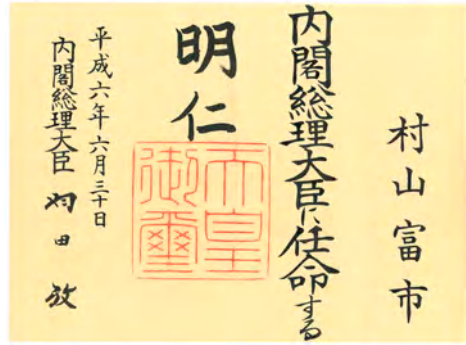 村山富市
内閣総理大臣に任命する
明仁
天皇御璽
平成六年六月三十日
内閣総理大臣 羽田孜